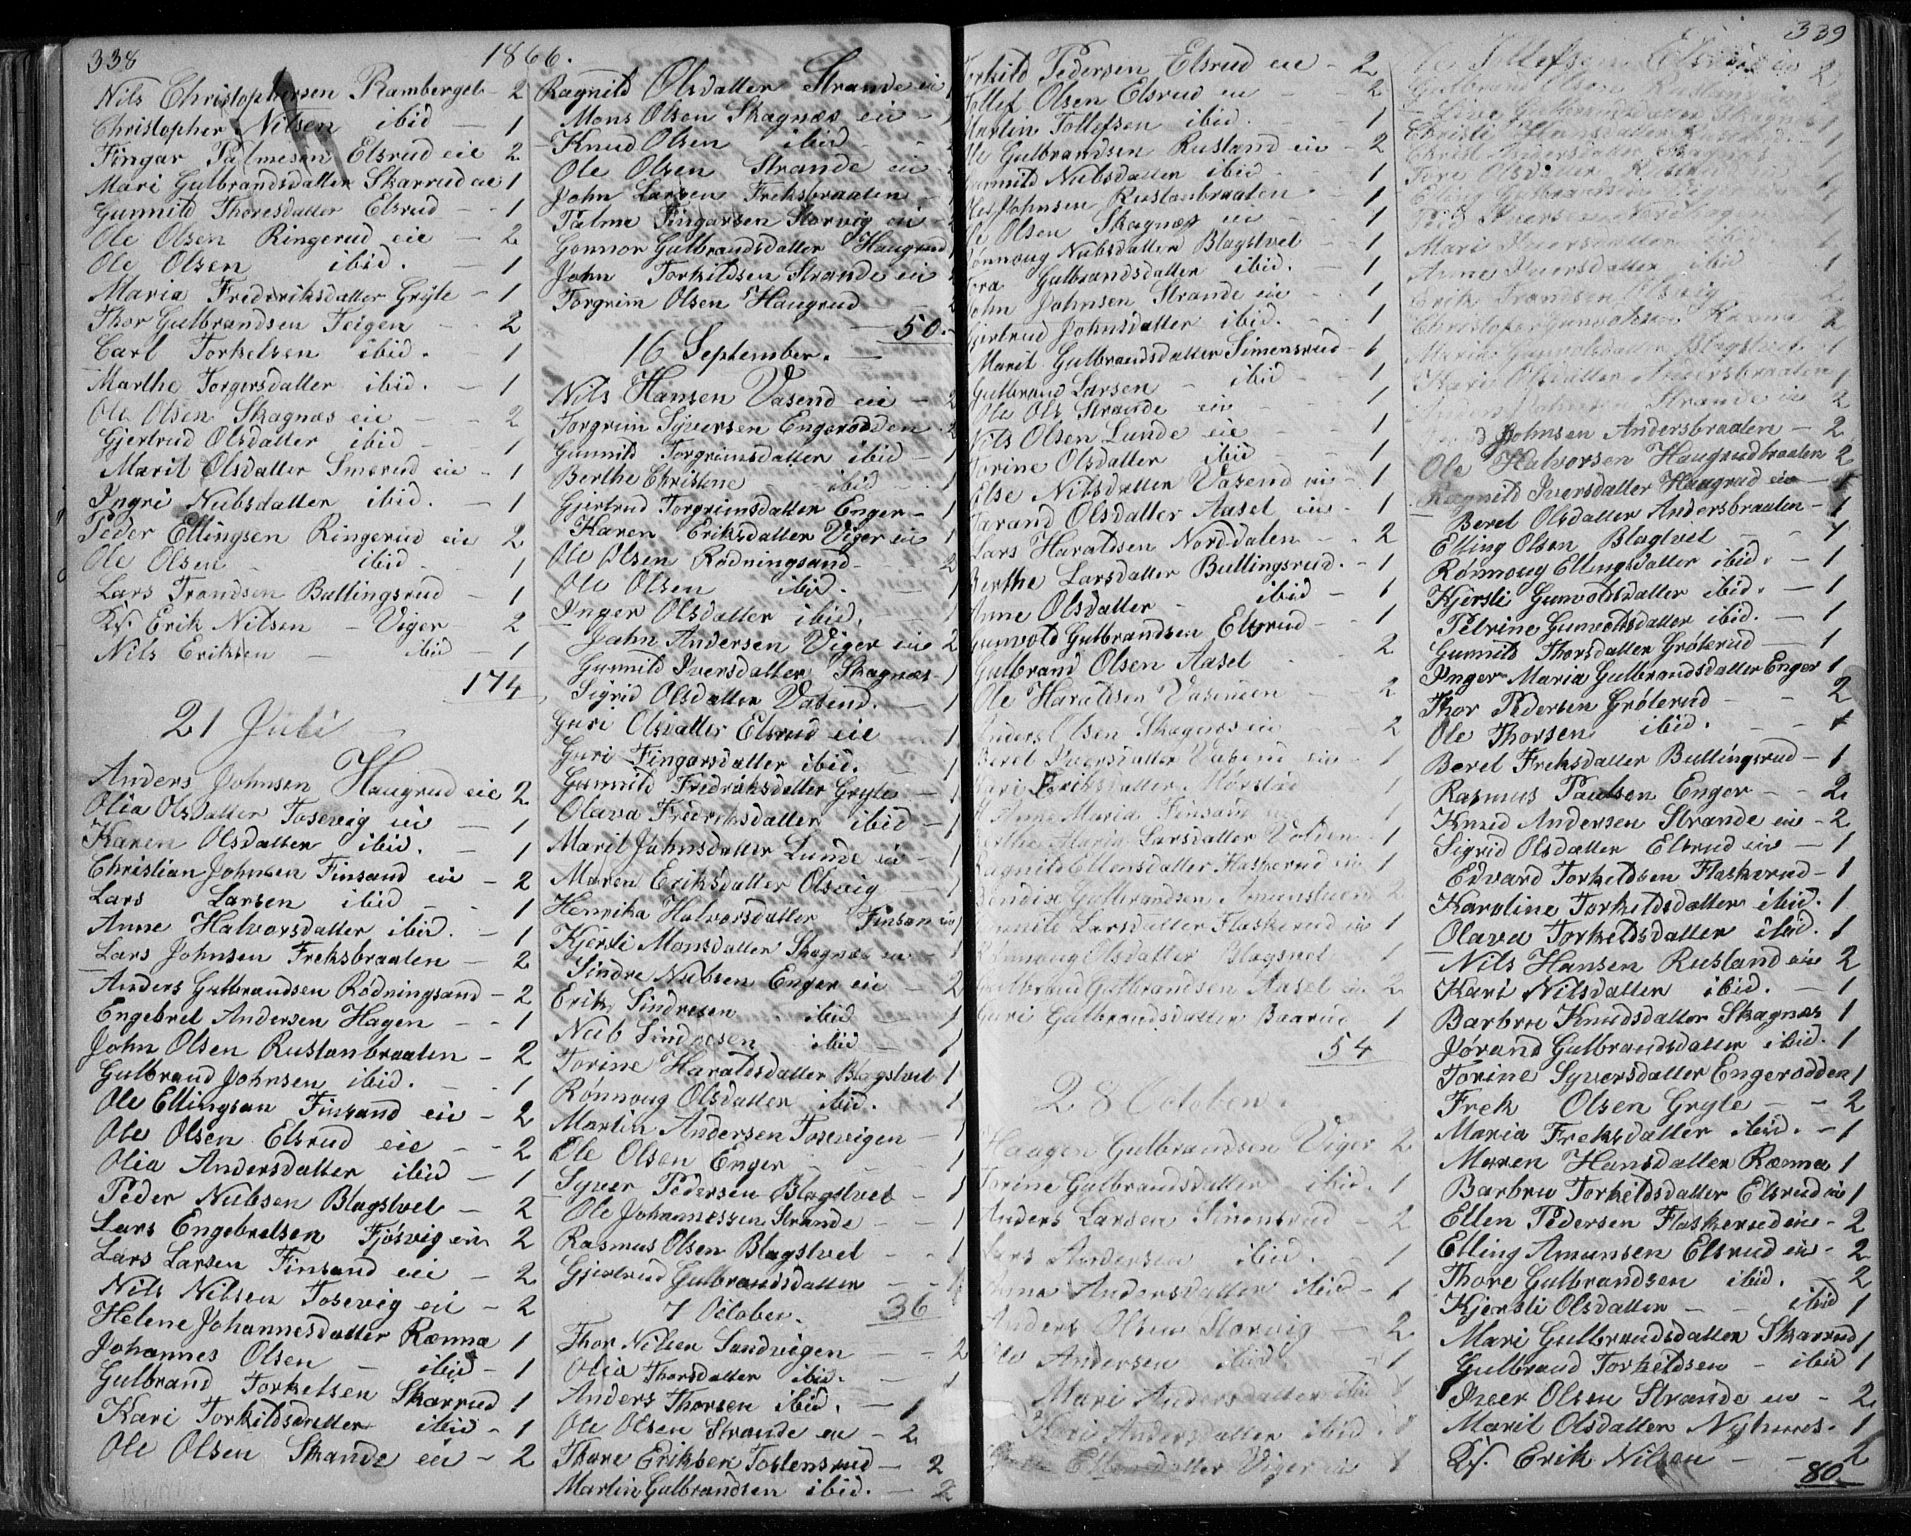 338
1866.
Nils Christophersen Ramberget - 2
Christopher Nilsen ibid - 1
Fingar Palmesen Elsrud eie 2
Mari Gulbrandsdatter Skarrud eie 1
Gunnild Thoresdatter Elsrud - 1
Ole Olsen Ringerud eie - 2
Ole Olsen ibid. - 1
Maria Frederiksdatter Gryte - 1
Thor Gulbrandsen Teigen - 2
Carl Torkelsen ibid. 1
Marthe Torgersdatter ibid. - 1
Ole Olsen Skagnæs eie - 2
Gjertrud Olsdatter ibid - 1
Marit Olsdatter Smerud eie - 1
Yngri Nubsdatter ibid. - 1
Peder Ellingsen Ringerud eie 2
Ole Olsen ibid - 1
Lars Trondsen Buttingsrud - 1
Ks. Erik Nilsen - Viger - 2
Nils Eriksen - ibid - 1
174
21 Juli
Anders Johnsen Haugrud eie 2
Olia Olsdatter Tosevig eie - 1
Karen Olsdatter ibid. - 1
Christian Johnsen Finsand eie - 2
Lars Larsen ibid - 1
Anne Halvorsdatter ibid. - 1
Lars Johnsen Freksbraaten - 2
Anders Gulbrandsen Rodningsand - 2
Engebret Andersen Hagen - - 1
John Olsen Ruslanbraaten - 2
Gulbrand Johnsen ibid. - 1
Ole Ellingsen Finsand eie - 2
Ole Olsen Elsrud eie - - 2
Olia Andersdatter ibid - 1
Peder Nubsen Blagstvet - 2
Lars Engebretsen Fjösvig eie 2
Lars Larsen Finsand eie - 2
Nils Nilsen Tosevig eie - 2
Helene Johannesdatter Rænna 1
Johannes Olsen - ibid - 1
Gulbrand Torkelsen Skarrud 1
Kari Torkildsdatter ibid - 1
Ole Olsen Strande eie - 2
Ragnild Olsdatter Strande eie
Mons Olsen Skagnæs eie - 1
Knud Olsen ibid -
Ole Olsen Strande eie
John Larsen Freksbraaten -
Palma Fingarsen Storvig eie -
Gonnor Gulbrandsdatter Haugrud
John Torkildsen Strande eie
Torgrim Olsen Haugrud
50.
16 September.
Nils Hansen Vasend eie - 2
Torgrim Syversen Engerodden 2
Gunnild Torgrimsdatter ibid - 1
Berthe Christine ibid - 1
Gjertrud Torgrimsdatter Enger - 1
Karen Eriksdatter Viger eie 1
Ole Olsen Rodningsand - 2
Ole Olsen ibid. - 1
Inger Olsdatter ibid. - 1
John Andersen Viger eie 2
Gunnild Iversdatter Skagnæs - 1
Sigrid Olsdatter Vasend. - 1
Guri Olsdatter Elsrud eie 1
Guri Fingarsdatter ibid. 1
Gunnild Fridriksdatter Gryte - 1
Olava Fredriksdatter ibid - 1
Marit Johnsdatter Lunde eie - 1
Maren Eriksdatter Olsvig - 1
Henrika Halvorsdatter Finsan eie 1
Kjersti Monsdatter Skagnæs eie - 1
Sindre Nubsen Enger eie - 2
Erik Sindresen - ibid - 1
Nub Sindresen ibid - 1
Torine Haraldsdatter Blagstvet 1
Rønnoug Olsdatter ibid. 1
Martin Andersen Tosevigen - 1
Ole Olsen Enger - - 1
Syver Pedersen Blagstvet - 1
Ole Johannessen Strande - - 1
Rasmus Olsen Blagstvet - - 1
Gjertrud Gulbrandsdatter - - 1
7 October. 36
Thor Nilsen Sandvigen - - 2
Olia Thorsdatter ibid. - 1
Anders Thorsen ibid. - 1
Ole Olsen Strande eie - 2
Thore Eriksen Tostensrud - 2
Martin Gulbrandsen ibid. - 2
339
Torkild Pedersen Elsrud eie - 2
Tollef Olsen Elsrud eie - 2
Martin Tollefsen ibid. - 1
Ole Gulbrandsen Rusland eie - 2
Gunnild Nubsdatter ibid. - 1
Johnsen Ruslanbraaten - 1
Ole Olsen Skagnæs eie - 1
Rønnoug Nubsdatter Blagstvet - 1
Tora Gulbrandsdatter ibid. - 1
John Johnsen Strande eie - 1
Gjertrud Johnsdatter ibid. - 1
Marit Gulbrandsdatter Simensrud - 1
Gulbrand Larsen - ibid - 1
Ole Ols Strande eie - 1
Nils Olsen Lunde eie - 1
Torine Olsdatter ibid 1
Else Nilsdatter Vasend eie - 1
Jørand Olsdatter Aasel eie - 1
Lars Haraldsen Norddalen - - 2
Berthe Larsdatter Buttingsrud. - 1
Anne Olsdatter - ibid - 1
Gunvold Gulbrandsen Elsrud - - 1
Gulbrand Olsen Aasel - 2
Ole Haraldsen Vasenden 2
Anders Olsen Skagnæs eie - 2
Beret Iversdatter Vasend eie - 1
Kari Eriksdatter Mørstad 1
Anne Maria Finsand eie 1
Berthe Maria Larsdatter Volden - 1
Ragnild Ellensdatter Flaskerud eie 1
Bendix Gulbrandsen Amunstuen 2
Gunnild Larsdatter Flaskerud eie 1
Rønnoug Olsdatter Blagsvet 1
Gulbrand Gulbrandsen Aasel eie 2
Guri Gulbrandsdatter Baarud 1
54
28 October.
Haagen Gulbrandsen Viger 2
Torine Gulbrandsdatter ibid. 1
Anders Larsen Simensrud - 2
Lars Andersen ibid. 1
Anna Andersdatter ibid - 1
Anders Olsen Storvig - 2
Ole Andersen ibid. - 1
Mari Andersdatter ibid 1
Kari Andersdatter ibid. 1
Ellensdatter Viger eie 1
Ole Tollefsen Elsrud eie 2
Gulbrand Olsen Rusland eie 2
Live Gulbrandsdatter Skagnæs 1
Christi Hansdatter 1
Christ Andersdatter Skagnæs
Tore Olsdatter
Peder Iversen Nordhagen
Mari Iversdatter ibid 1
Anne Iversdatter ibid 1
Erik Trondsen Olsvig 2
Christofer Gunvoldsen Rænna 2
Marthe Gunvoldsdatter Blagstvet 1
Kari Olsdatter Andersbraaten 1
Johnsen Strande eie 2
Johnsen Andersbraaten - 2
Ole Halvorsen Haugrudbraaten 2
Ragnild Iversdatter Haugrud eie - 1
Beret Olsdatter Andersbraaten - 1
Elling Olsen Blagtvet - - 1
Rønnoug Ellingsdatter ibid. - 1
Kjersti Gunvoldsdatter ibid. - 1
Petrine Gunvoldsdatter ibid. - 1
Gunnild Thorsdatter Grøterud - 1
Inger Maria Gulbrandsdatter Enger 1
Thor Pedersen Grøterud - 2
Ole Thorsen ibid. - 1
Beret Freksdatter Buttingsrud - 1
Rasmus Paulsen Enger - - 2
Knud Andersen Strande eie - 2
Sigrid Olsdatter Elsrud eie - 1
Edvard Torkeldsen Flaskerud - 1
Karoline Torkeldsdatter ibid. 1
Olava Torkeldsdatter ibid. 1
Nils Hansen Rusland eie 2
Kari Nilsdatter ibid. - 1
Barbru Knudsdatter Skagnæs 1
Jørand Gulbrandsdatter ibid. 1
Torine Syversdatter Engerodden 1
Frek Olsen Gryte - - 2
Maria Freksdatter ibid. - 1
Maren Hansdatter Rænna 1
Barbru Torkildsdatter Elsrud eie 1
Ellen Pedersen Flaskerud eie - 2
Elling Amunsen Elsrud eie - 2
Thore Gulbrandsen ibid. 2
Kjersti Olsdatter - - ibid 1
Mari Gulbrandsdatter Skarrud 1
Gulbrand Torkeldsen - ibid 1
Iver Olsen Strande eie - 2
Marit Olsdatter - 1
Ks. Erik Nilsen - - 2
80